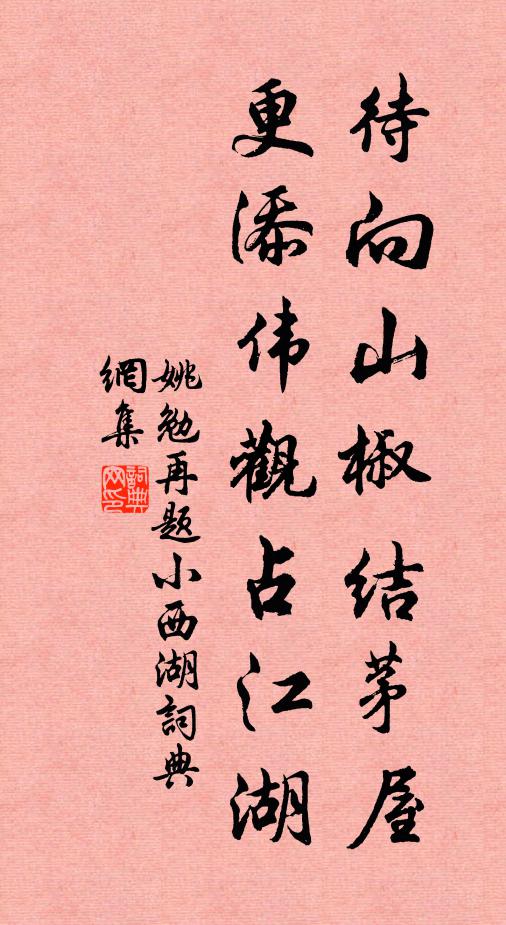 待向山椒结茅屋
更添伟觀占江湖
姚勉再题小西湖詞典
網集
詞典网印